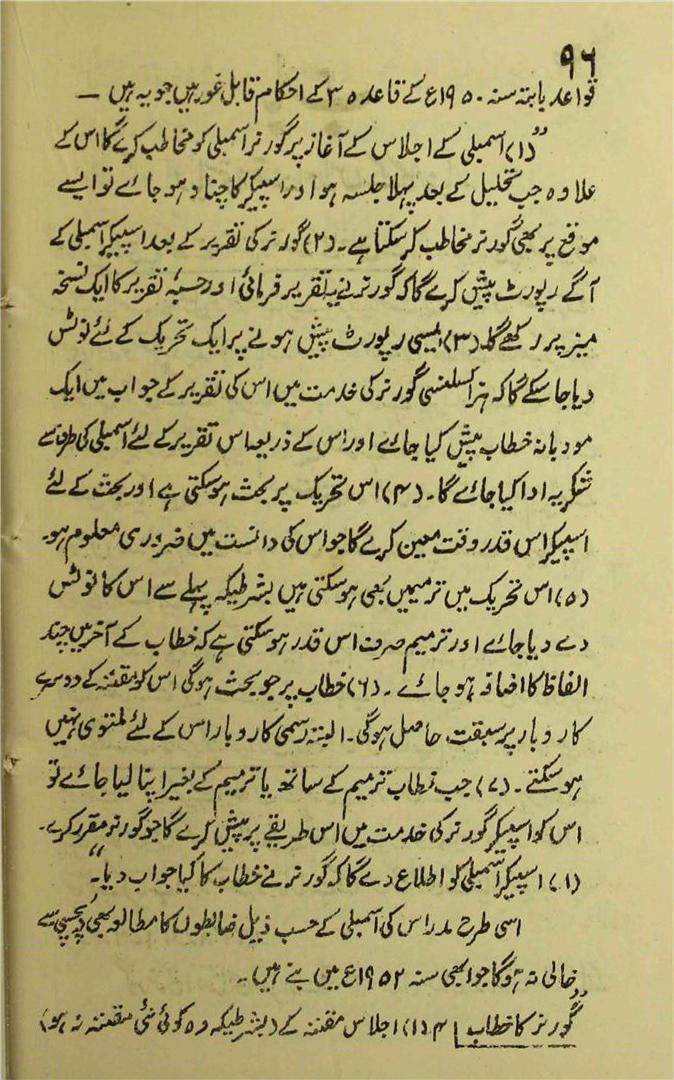 ۹۶
قواعد بابتہ سنہ ۱۹۵۰ع کے قاعدہ ۳۵ کے احکام قابل غور ہیں جو یہ ہیں ــ
”(۱) اسمبلی کے اجلاس کے آغاز پر گورنر اسمبلی کو مخاطب کرے گا اس کے
علاوہ جب تحلیل کے بعد پہلا جلسہ ہو اور اسپیکر کا چناو ہو جائے تو ایسے
موقع پر بھی گورنر مخاطب کر سکتا ہے۔ (۲) گورنر کی تقریر کے بعد اسپیکر اسمبلی کے
آگے رپورٹ پیش کرے گا کہ گورنر نے یہ تقریر فرمائی اور حسبہٗ تقریر کا ایک نسخہ
میز پر رکھے گا۔ (۳) ایسی رپورٹ پیش ہونے پر ایک تحریک کے لئے نوٹس
دیا جا سکے گا کہ ہز اکسلنسی گورنر کی خدمت میں اس کی تقریر کے جواب میں ایک
مودبانہ خطاب پیش کیا جائے اور اس کے ذریعہ اس تقریر کے لئے اسمبلی کی طرف سے
شکریہ ادا کیا جائے گا۔ (۴) اس تحریک پر بحث ہو سکتی ہے اور بحث کے لئے
اسپیکر اس قدر وقت معین کرے گا جو اس کی دانست میں ضروری معلوم ہو۔
(۵) اس تحریک میں ترمیمیں بھی ہو سکتی ہیں بشرطیکہ پہلے سے اس کا نوٹس
دے دیا جائے اور ترمیم صرف اس قدر ہو سکتی ہے کہ خطاب کے آخر میں چند
الفاظ کا اضافہ ہو جائے ۔ (۶) خطاب پر جو بحث ہوگی اس کو مقننہ کے دوسرے
کاروبار پر سبقت حاصل ہوگی۔ البتہ رسمی کاروبار اس کے لئے ملتوی نہیں
ہو سکتے۔ (۷) جب خطاب ترمیم کے ساتھ یا ترمیم کے بغیر اپنا لیا جائے تو
اس کو اسپیکر گورنر کی خدمت میں اس طریقے پر پیش کرے گا جو گورنر مقرر کرے۔
(۸) اسپیکر اسمبلی کو اطلاع دے گا کہ گورنر نے خطاب کا کیا جواب دیا۔“
اسی طرح مدراس کی اسمبلی کے حسب ذیل ضابطوں کا مطالعہ بھی دلچسپی سے
خالی نہ ہوگا جو ابھی سنہ ۱۹۵۲ع میں بنے ہیں۔
”گورنر کا خطاب| ۴ (۱) اجلاس مقننہ کے (بشرطیکہ وہ کوئی نئی مقننہ نہ ہو)